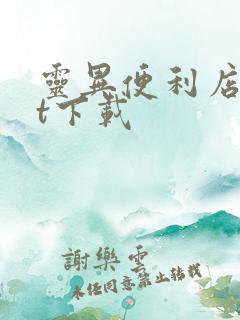 靈異便利店
t下載
謝樂雲
未經同意禁止轉載